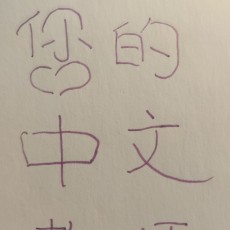 您的
中文